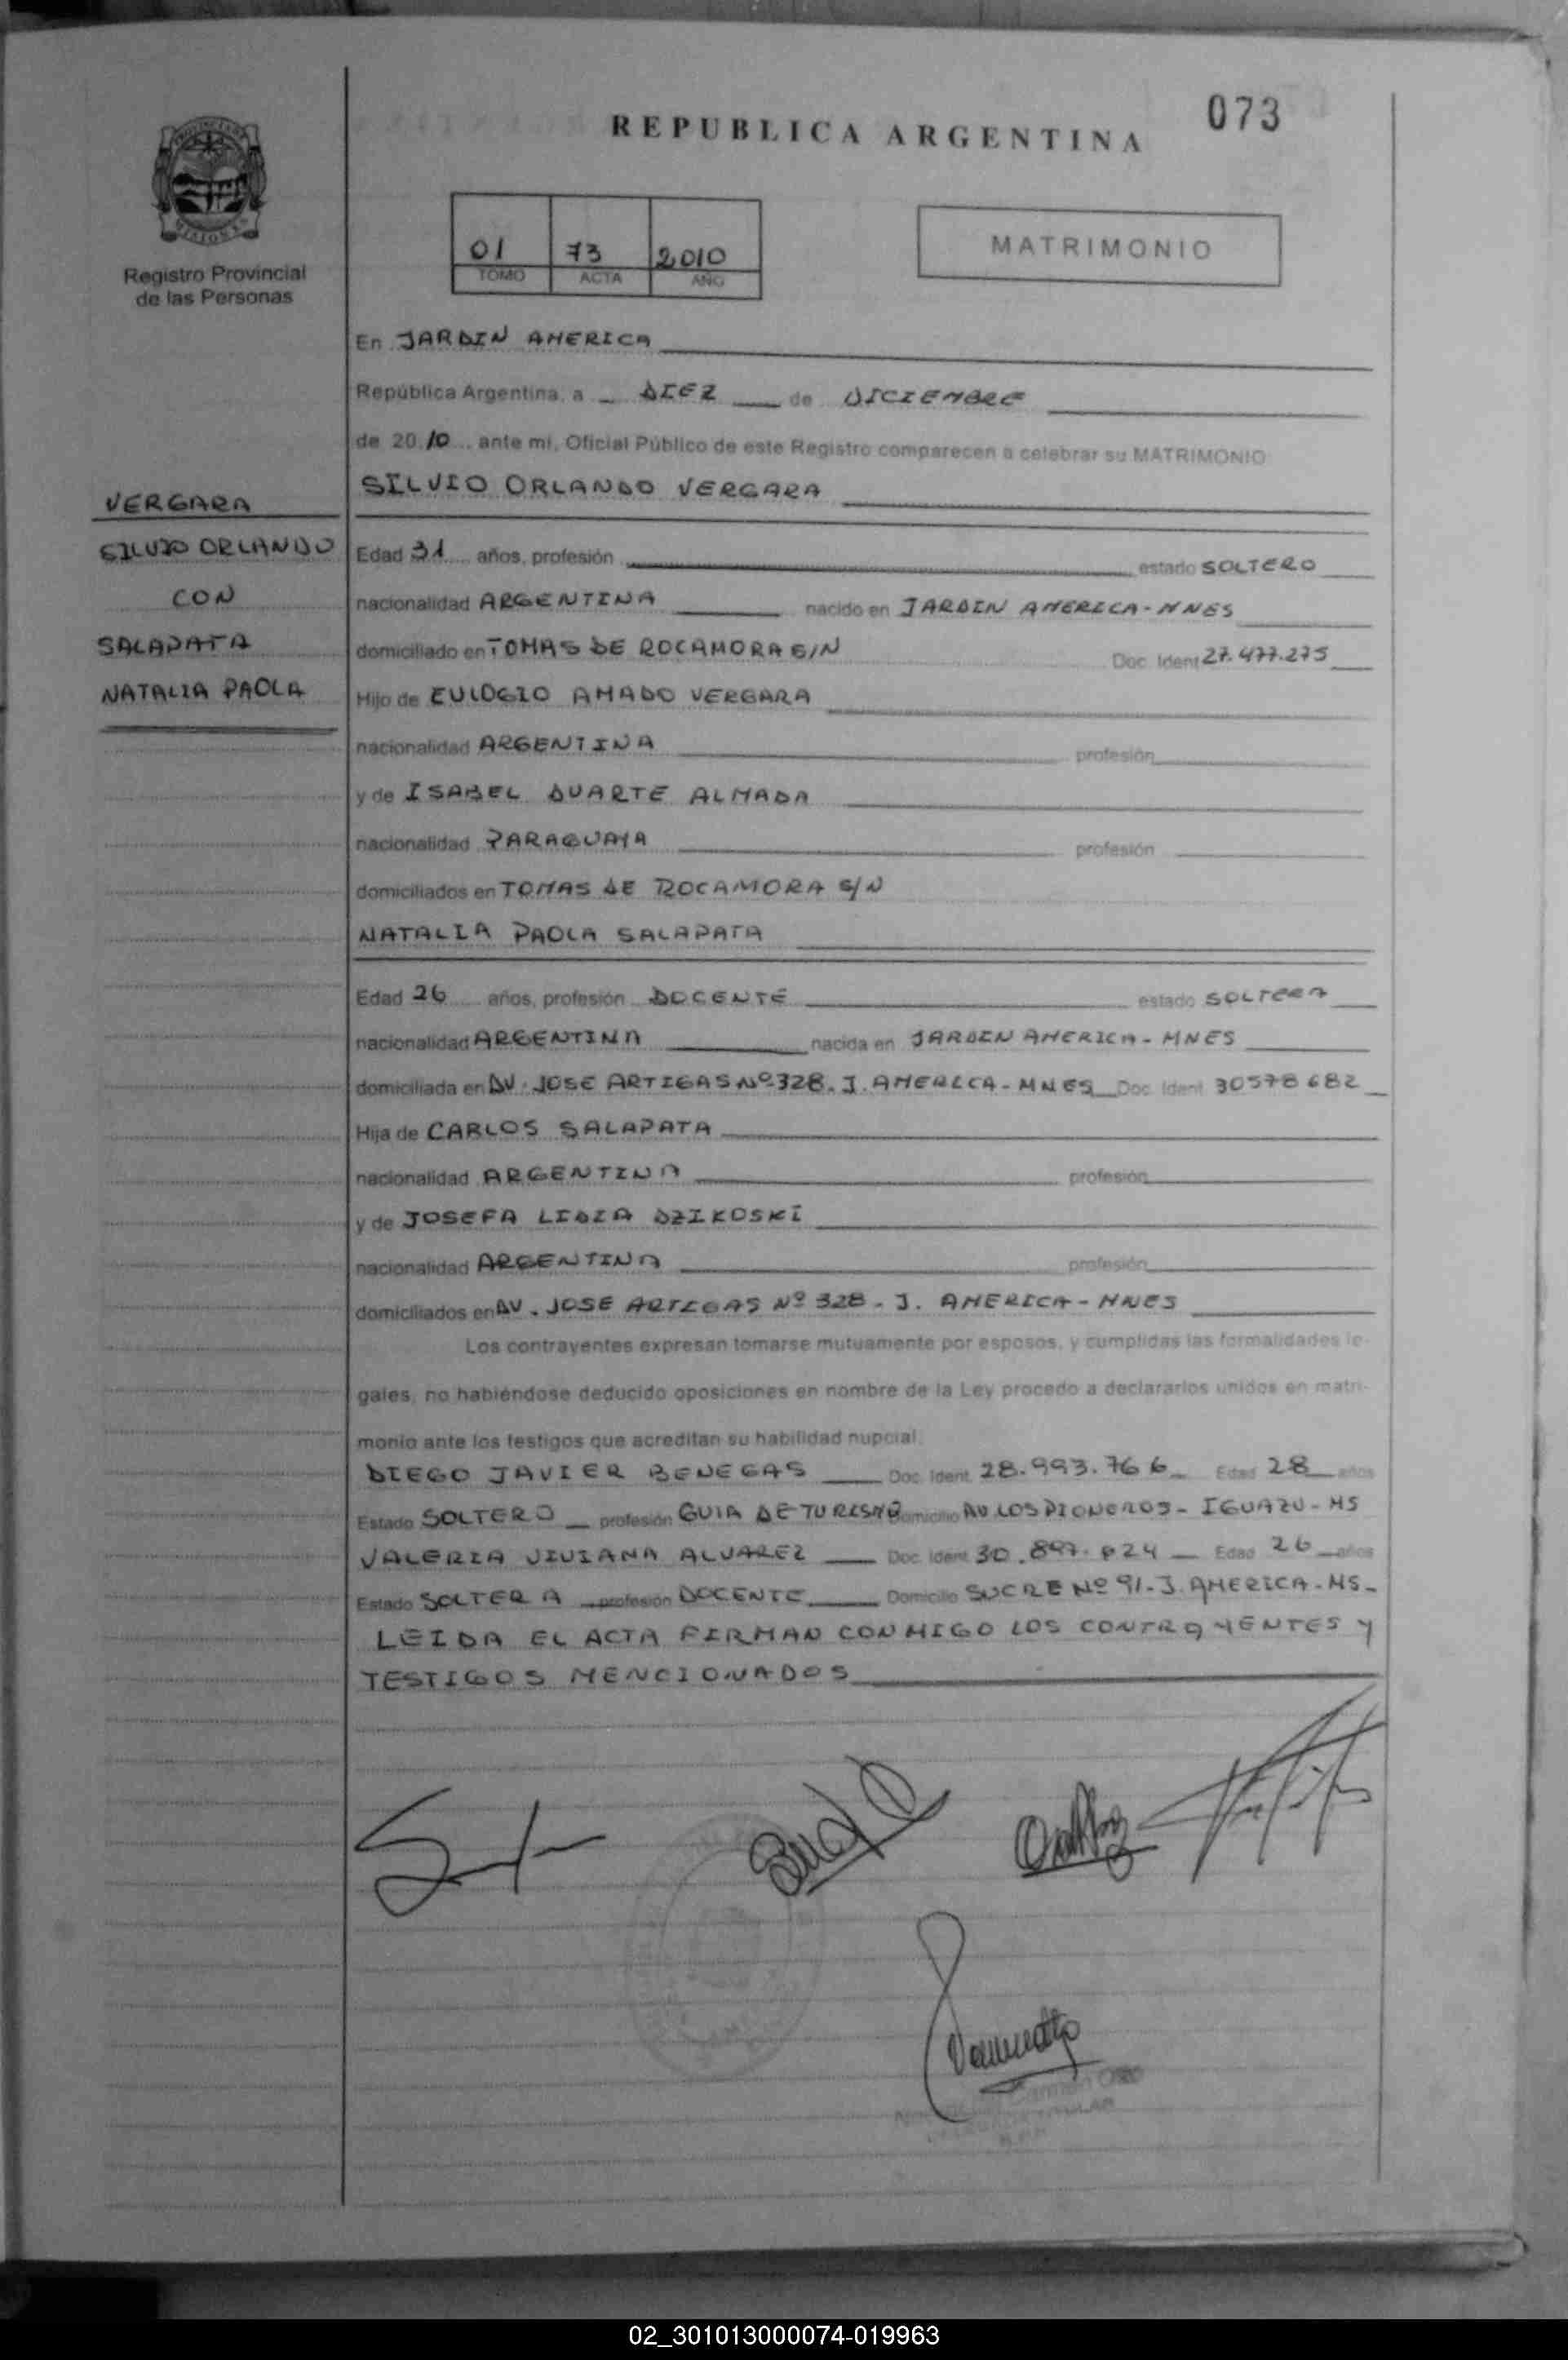 073
REPUBLICA ARGENTINA
Registro Provincial
de las Personas
01 73 2010
TOMO ACTA AÑO
MATRIMONIO
En JARDIN AMERICA
República Argentina, a DIEZ de DICIEMBRE
de 2010 ante mi, Oficial Público de este Registro comparecen a celebrar su MATRIMONIO
SILVIO ORLANDO VERGARA
VERGARA
SILVIO ORLANDO
CON
SALAPATA
NATALIA PAOLA
Edad 31 años, profesión estado SOLTERO
nacionalidad ARGENTINA nacido en JARDIN AMERICA - MNES
domiciliado en TOMAS DE ROCAMORA S/N Doc. Ident 27.477.275
Hijo de EULOGIO AMADO VERGARA
nacionalidad ARGENTINA profesión
y de ISABEL DUARTE ALMADA
nacionalidad PARAGUAYA profesión
domiciliados en TOMAS DE ROCAMORA S/N
NATALIA PAOLA SALAPATA
Edad 26 años, profesión DOCENTE estado SOLTERA
nacionalidad ARGENTINA nacida en JARDIN AMERICA - MNES
domiciliada en AV. JOSE ARTIGAS Nº 328. J. AMERICA - MNES Doc. Ident. 30578682
Hija de CARLOS SALAPATA
nacionalidad ARGENTINA profesión
y de JOSEFA LIDIA DZIKOSKI
nacionalidad ARGENTINA profesión
domiciliados en AV. JOSE ARTIGAS Nº 328 - J. AMERICA - MNES
Los contrayentes expresan tomarse mutuamente por esposos, y cumplidas las formalidades le-
gales, no habiéndose deducido oposiciones en nombre de la Ley procedo a declararlos unidos en matri-
monio ante los testigos que acreditan su habilidad nupcial.
DIEGO JAVIER BENEGAS Doc. Ident. 28.993.766 Edad 28 años
Estado SOLTERO profesión GUIA DE TURISMO Domicilio AV LOS PIONEROS - IGUAZU - MS
VALERIA VIVIANA ALVAREZ Doc. Ident. Edad 26 años
Estado SOLTERA profesión DOCENTE Domicilio SUCRE Nº 91 - J. AMERICA - MS -
LEIDA EL ACTA FIRMAN CONMIGO LOS CONTRAYENTES Y
TESTIGOS MENCIONADOS
02_301013000074-019963